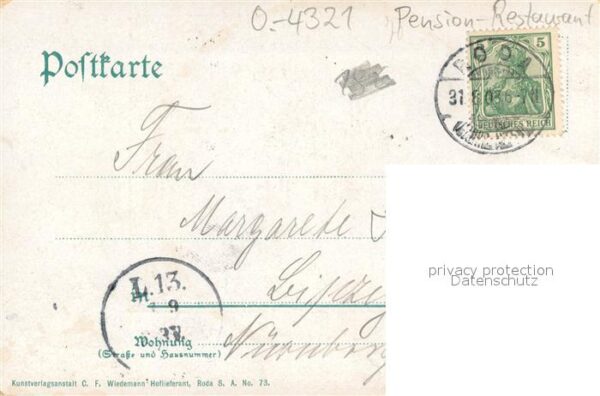 O.-4321 Pension-Restaurant
Postkarte
5
RODA
31.8.03.6-7N
DEUTSCHES REICH
Frau
Margarete
Leipzig
L.13.
1 9
Wohnung
(Straße und Hausnummer)
Nürnberg
privacy protection
Datenschutz
Kunstverlagsanstalt C. F. Wiedemann Hoflieferant, Roda S. A. No. 73.